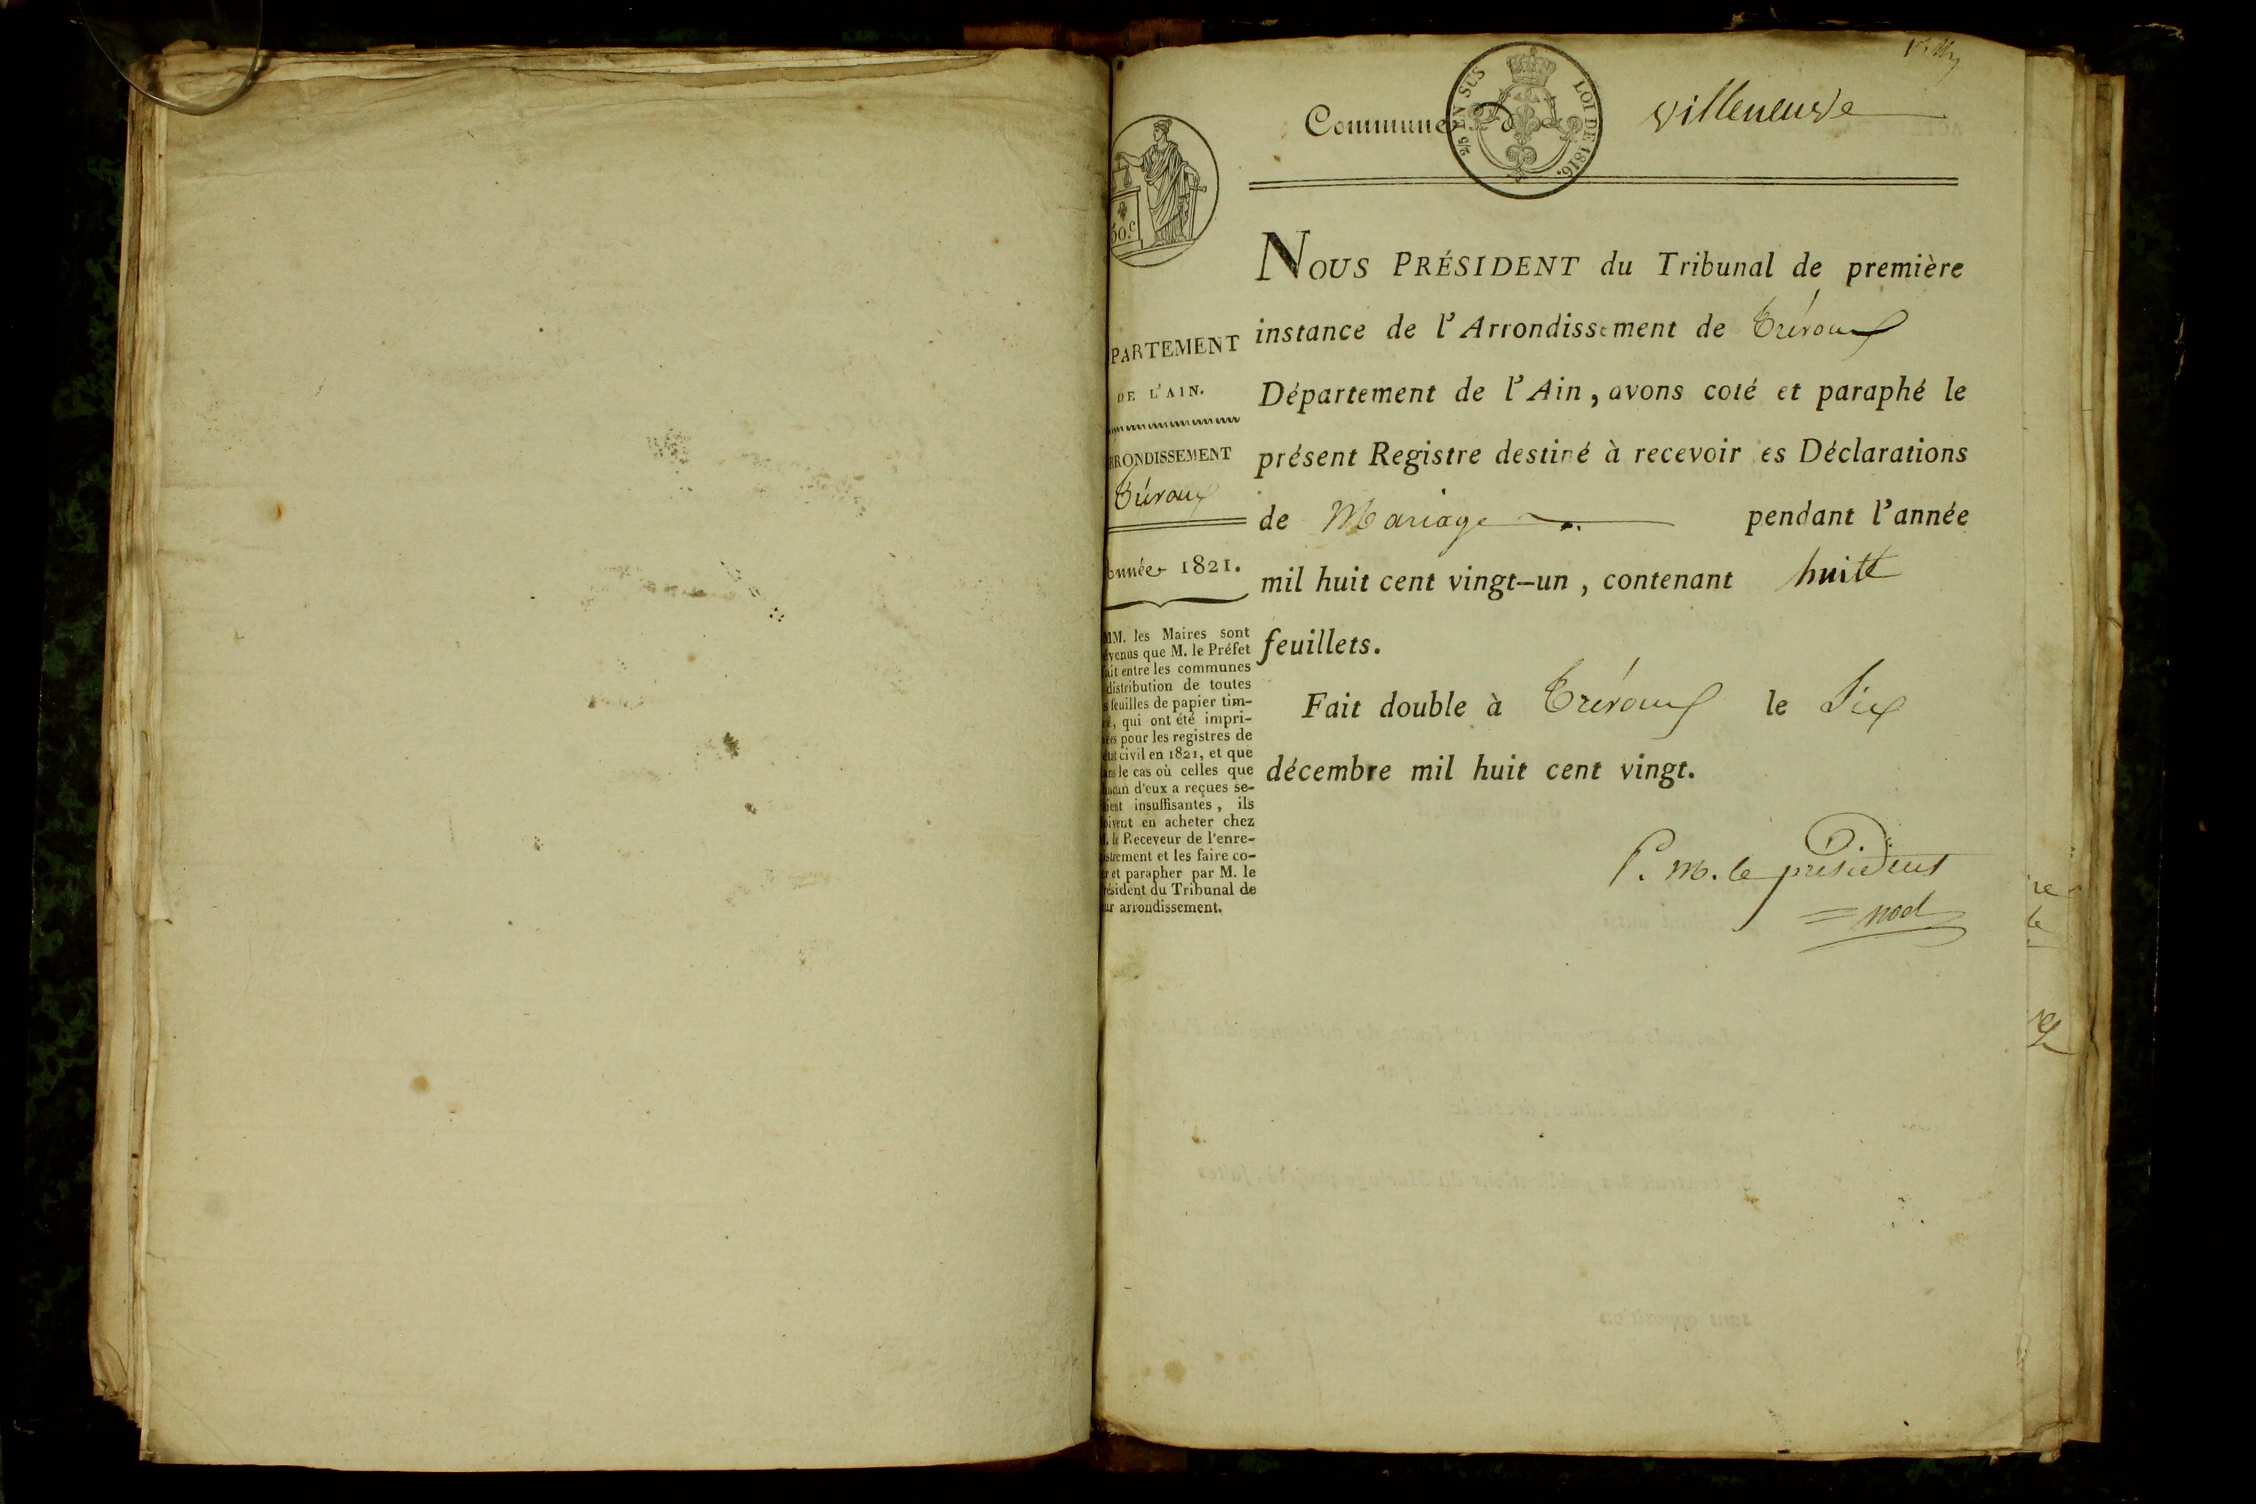 Commune de Villeneuve
2/5 EN SUS
LOI DE 1816.
50.c
NOUS PRÉSIDENT du Tribunal de première
instance de l'Arrondissement de Trévoux
Département de l'Ain, avons coté et paraphé le
présent Registre destiné à recevoir es Déclarations
de Mariage pendant l'année
mil huit cent vingt-un, contenant huitt
feuillets.
Fait double à Trévoux le Six
décembre mil huit cent vingt.
P. M. le président
noel
PARTEMENT
DE L'AIN.
RRONDISSEMENT
Trévoux
Année 1821.
MM. les Maires sont
venus que M. le Préfet
ait entre les communes
distribution de toutes
s feuilles de papier tim-
é, qui ont été impri-
ées pour les registres de
état civil en 1821, et que
ans le cas où celles que
hacun d'eux a reçues se-
ient insuffisantes, ils
oivent en acheter chez
. le Receveur de l'enre-
istrement et les faire co-
r et parapher par M. le
résident du Tribunal de
ur arrondissement.